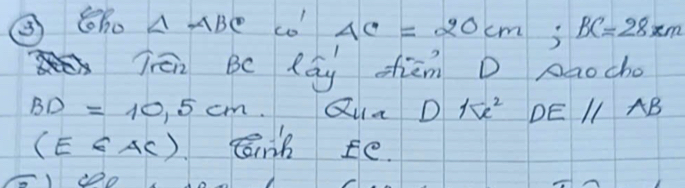 ③ Cho Δ ABC có AC = 20cm ; BC = 28cm
Trên BC lấy điểm D sao cho
BD = 10,5 cm. Qua D kẻ DE // AB
(E ∈ AC). Tính EC.